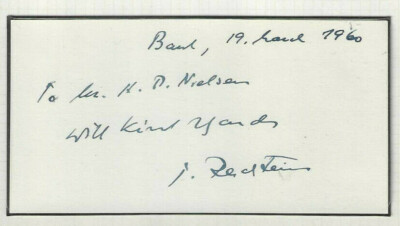 Basel, 19. March 1960
To Mr. H. D. Nielsen
with kind regards
T. Reichstein